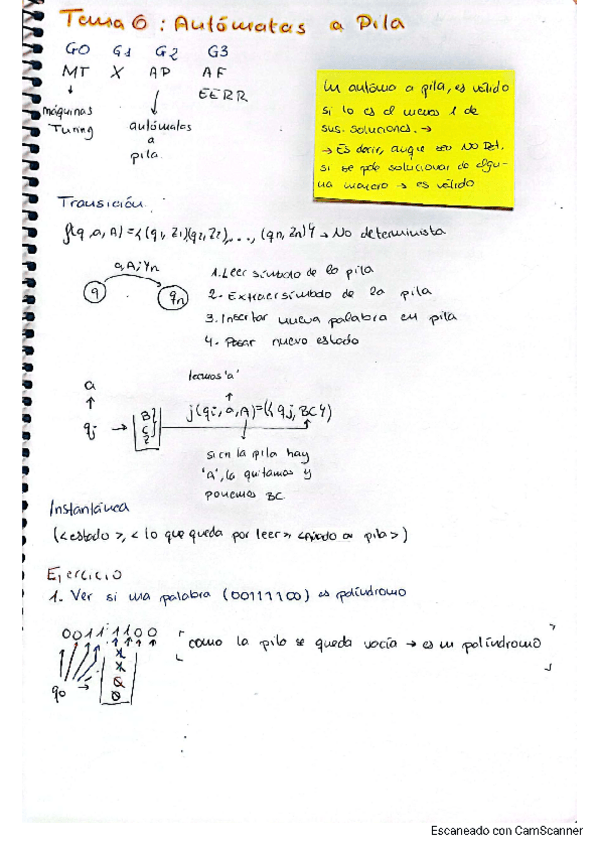 Tema 6 : Autómatas a Pila
G0 G1 G2 G3
MT X AP AF
EERR
máquinas
Turing
autómatas
a
pila
Un autóma a pila, es válido
si lo es al menos 1 de
sus soluciones. →
→ Es decir, aunque sea NO Det.
si se pde solucionar de algu-
na manera → es válido
Transición:
f(q, a, A) = {(q1, Z1)(q2, Z2), ..., (qn, Zn)} → No determinista
a,A;Yn
q qn
1. Leer símbolo de la pila
2. Extraer símbolo de la pila
3. Insertar nueva palabra en pila
4. Pasar nuevo estado
leemos 'a'
a
qj → B C f(qi, a, A) = ({qj, BC})
si en la pila hay
'A', la quitamos y
ponemos BC.
Instantánea
(<estado>, <lo que queda por leer>, <pila>)
Ejercicio
1. Ver si una palabra (00111100) es palíndromo
00111100
como la pila se queda vacía → es un palíndromo
q0 →
Escaneado con CamScanner